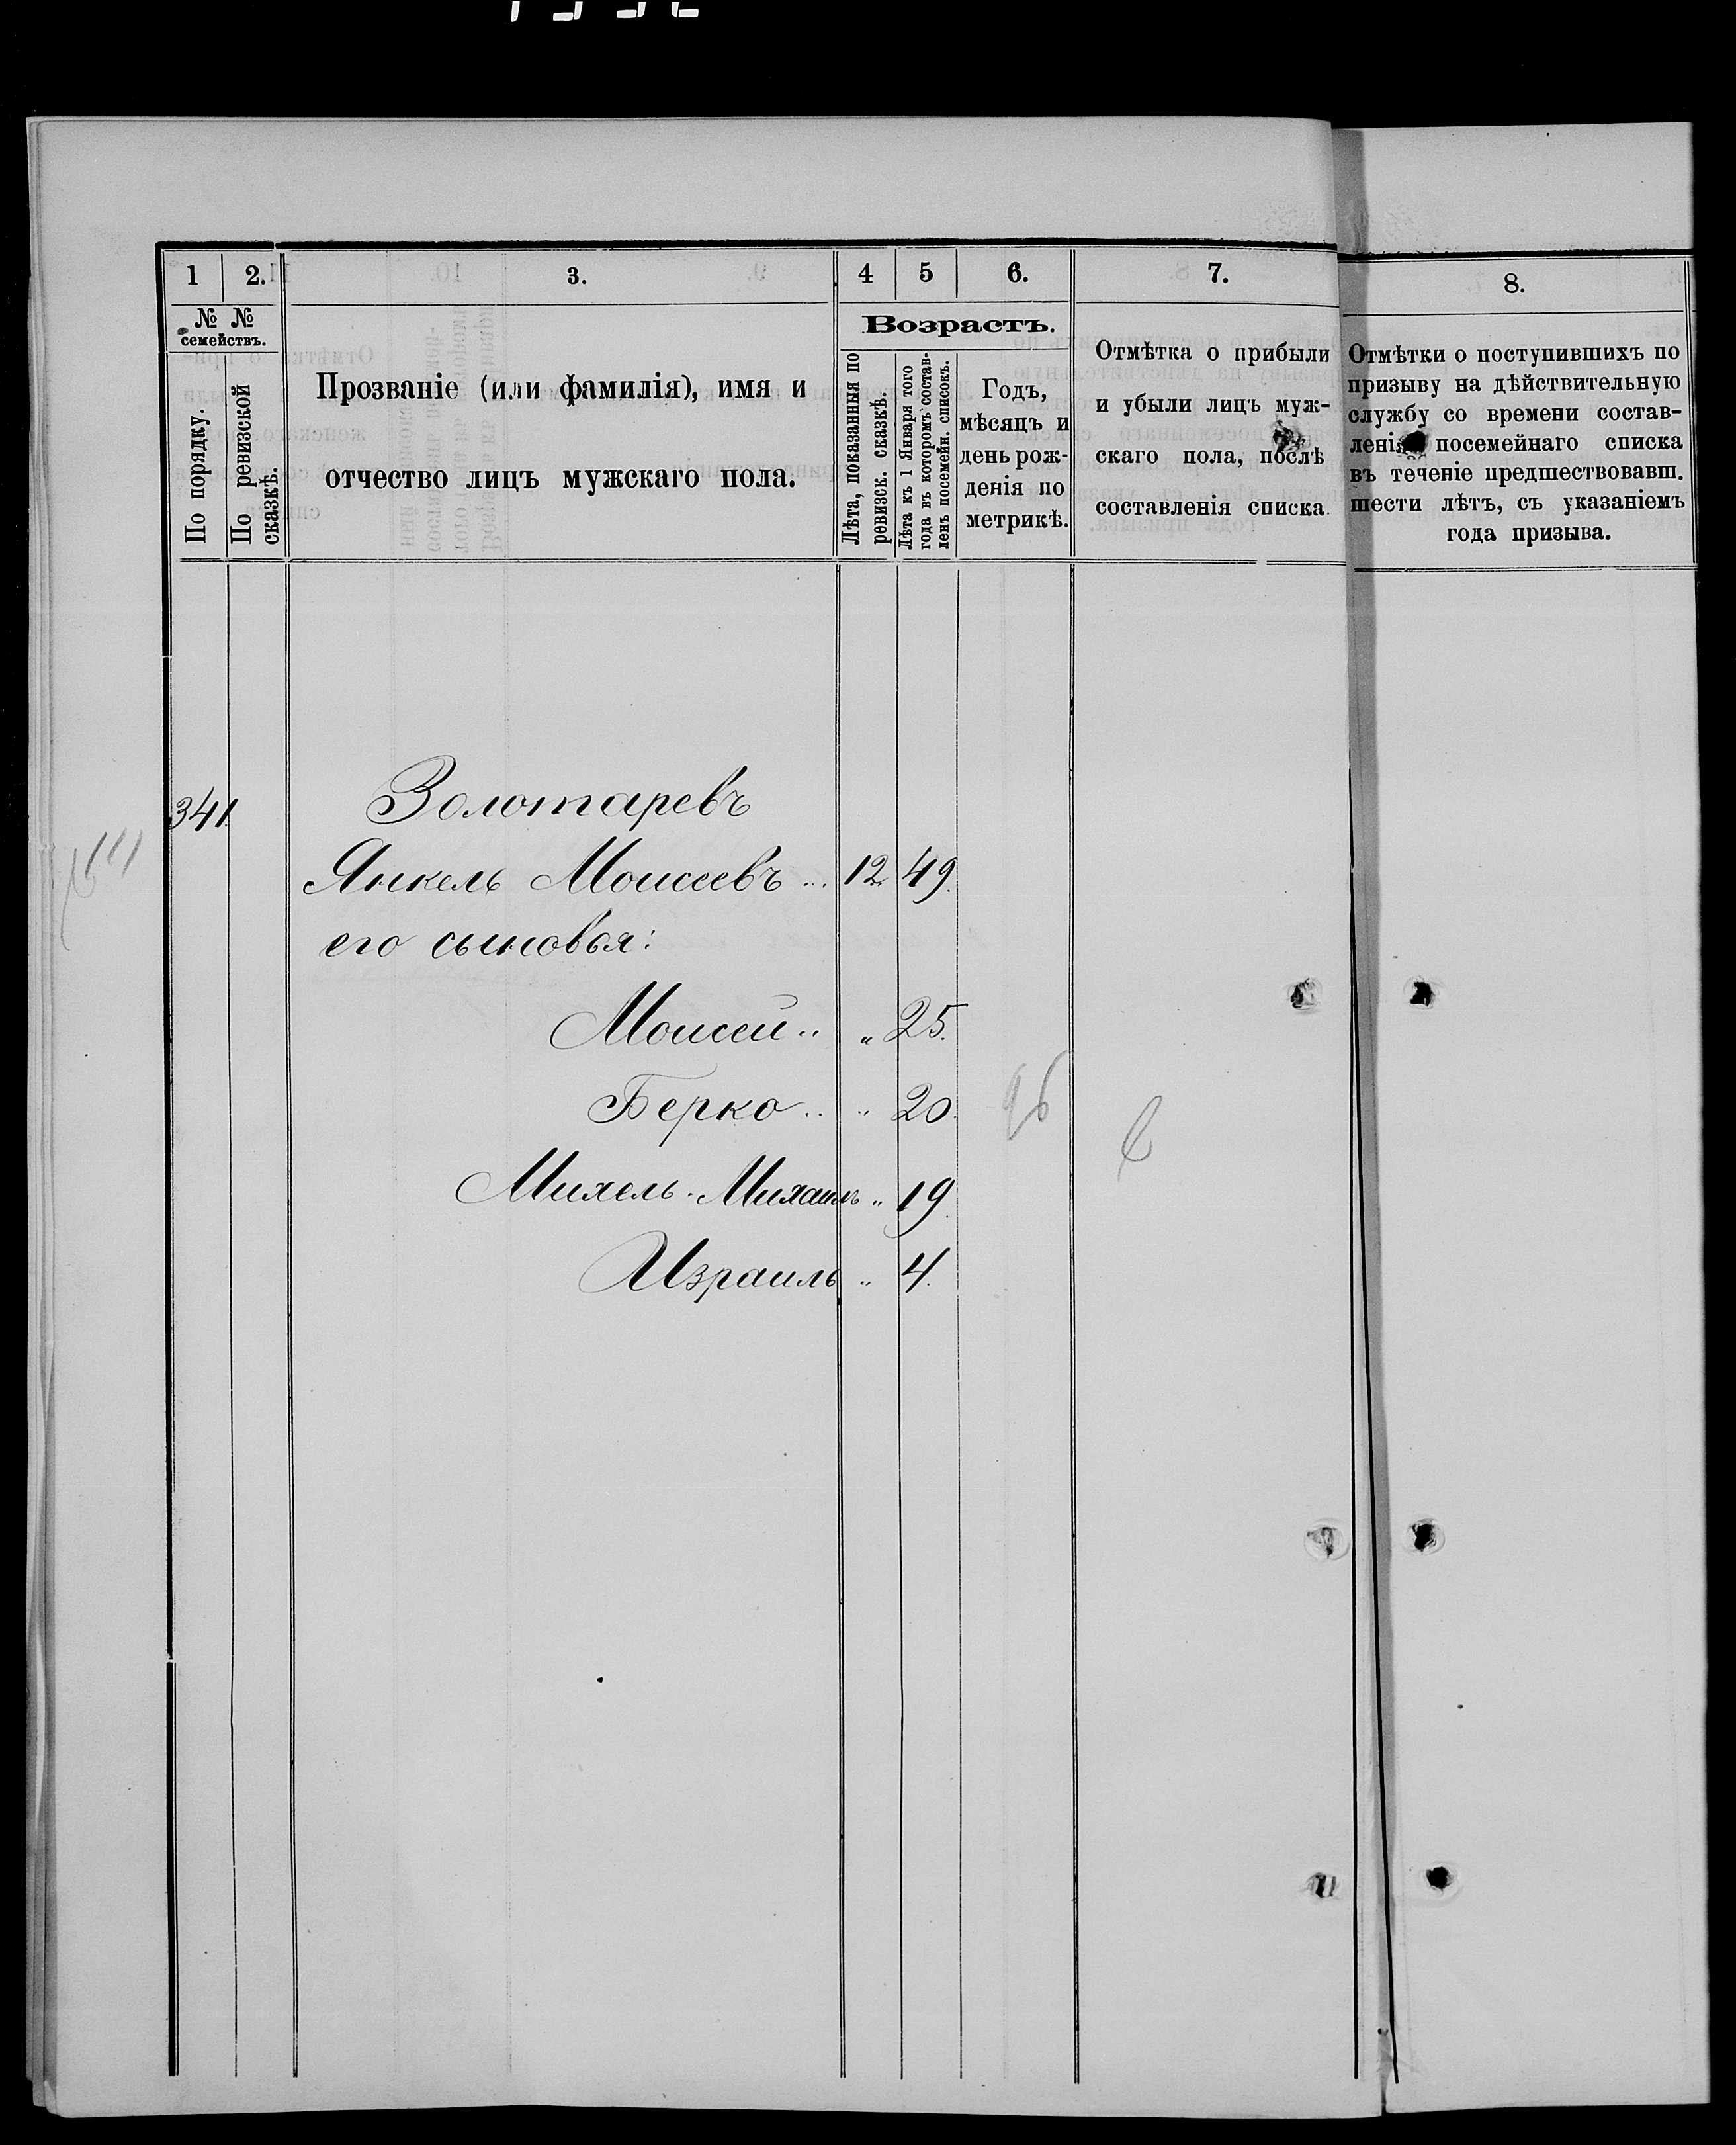 1 2. 3. 4 5 6. 7. 8.
№ № семействъ.
По порядку.
По ревизской сказкѣ.
Прозваніе (или фамилія), имя и
отчество лицъ мужскаго пола.
Возрастъ.
Лѣта, показанныя по
ревизск. сказкѣ.
Лѣта къ 1 Января того
года въ которомъ состав-
ленъ посемейн. списокъ.
Годъ,
мѣсяцъ и
день рож-
денія по
метрикѣ.
Отмѣтка о прибыли
и убыли лицъ муж-
скаго пола, послѣ
составленія списка.
Отмѣтки о поступившихъ по
призыву на дѣйствительную
службу со времени состав-
ленія посемейнаго списка
въ теченіе предшествовавш.
шести лѣтъ, съ указаніемъ
года призыва.
341. Золотаревъ
Янкель Моисеевъ .. 12. 49.
его сыновья:
Моисей .. „ 25.
Берко .. „ 20. 96
Михель-Михаилъ „ 19.
Израиль „ 4.